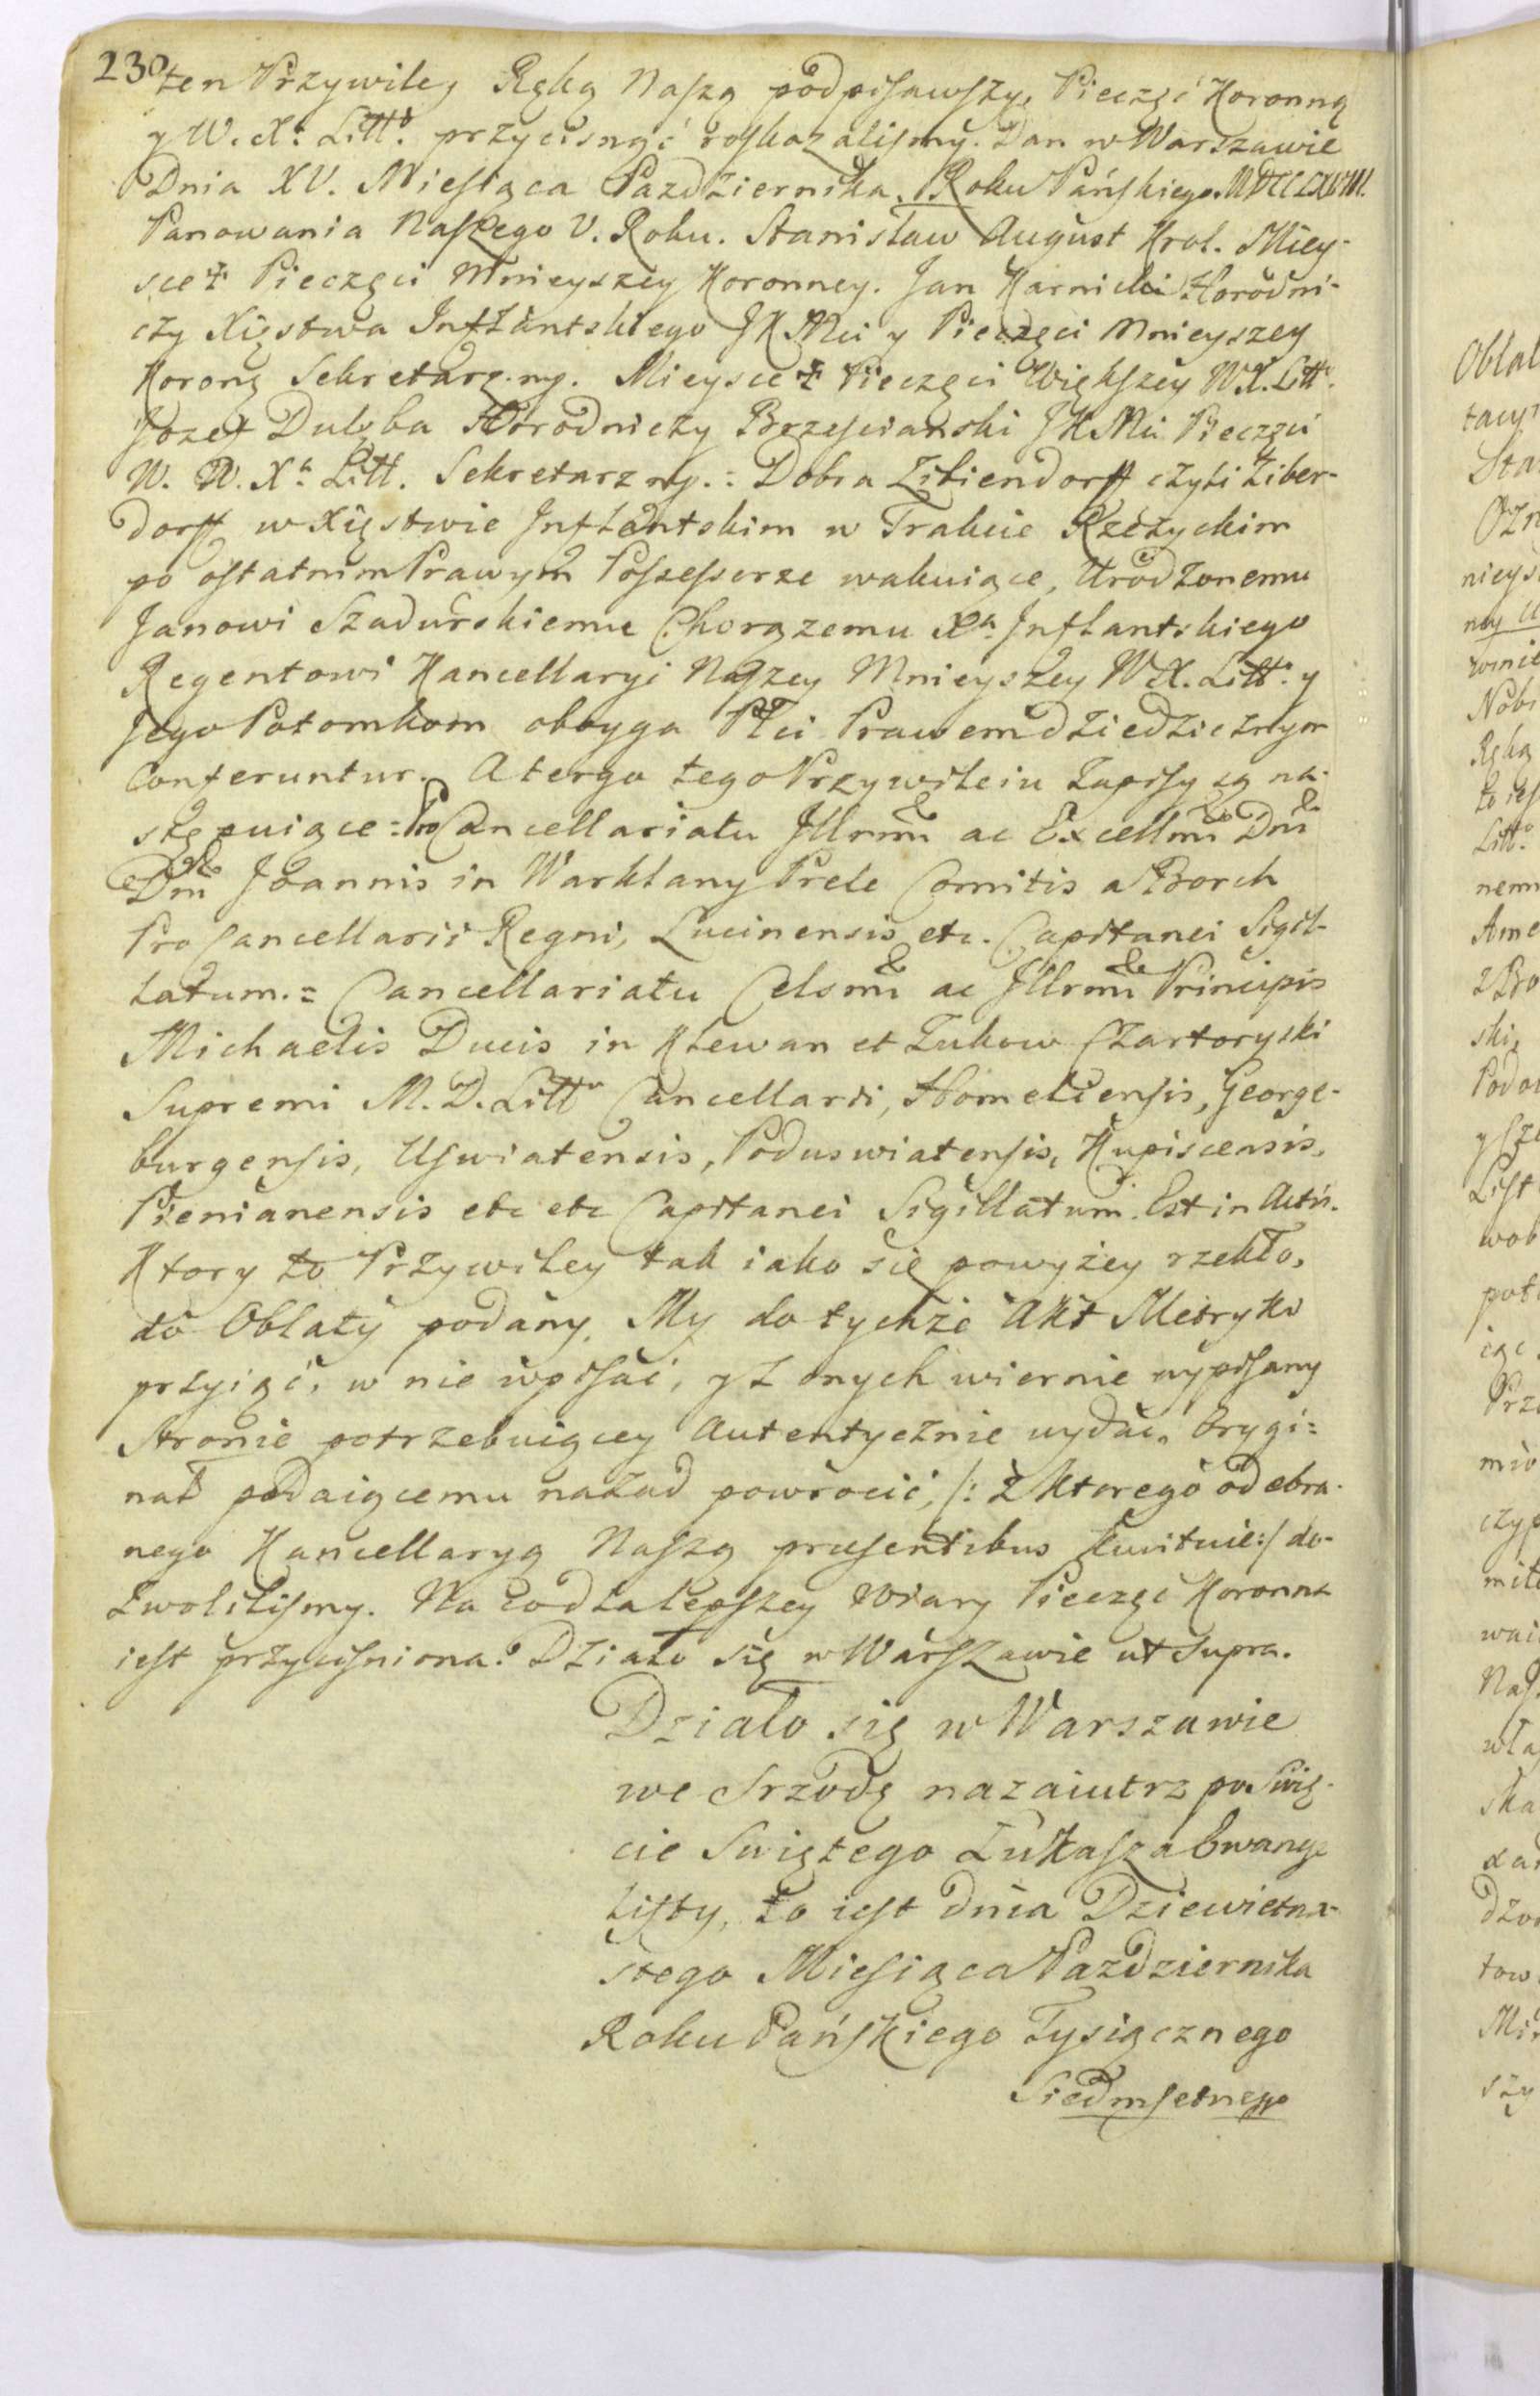 230
ten Przywiley Ręką Naszą podpisawszy, Pieczęć Koronną
y W. Xa Litto przycisnąć roskazalismy. Dan w Warszawie
Dnia XV. Miesiąca Pazdziernika. Roku Pańskiego. MDCCLXVIII.
Panowania Naszego V. Roku. Stanisław August Krol. Miey-
sce ⳨ Pieczęci Mnieyszey Koronney. Jan Karnicki Horodni-
czy Xięstwa Inflantskiego JKMci y Pieczęci Mnieyszey
Korony Sekretarz. mp. Mieysce ⳨ Pieczęci Większey WX. Litto.
Jozef Dulęba Horodniczy Brzescianski JKMci Pieczęci
W. W. Xa Litt. Sekretarz mp.: Dobra Zibiendorff czyli Ziber-
dorff w Xięstwie Inflantskim w Trakcie Rzeżyckim
po ostatnim Prawym Possessorze wakuiące, Urodzonemu
Janowi Szadurskiemu Chorązemu Xa Inflantskiego
Regentowi Kancellaryi Naszey Mnieyszey WX. Litto. y
Jego Potomkom oboyga Płci Prawem dziedzicznym
Conferuntur. A tergo tego Przywileiu Zapisy są na-
stępuiące: Pro Cancellariatu Illrmi ac Excellmi Dni
Dni Joannis in Warklany Prele Comitis a Borch
Pro Cancellarii Regni, Lucinensis etc. Capitanei Sigil-
latum. = Cancellariatu Celsmi ac Illrmi Principis
Michaelis Ducis in Klewan et Zukow Czartoryski
Supremi M. D. Litto Cancellarii, Homeliensis, George-
burgensis, Uswiatensis, Poduswiatensis, Kupiscensis,
Pienianensis etc etc Capitanei Sigillatum. Est in Actis.
Ktory to Przywiley tak iako się powyżey rzekło,
do Oblaty podany, My do tychże Akt Metryki
przyiąć, w nie wpisać, y z onych wiernie wypisany
Stronie potrzebuiącey Autentycznie wydać, Orygi=
nał podaiącemu nazad powrocić, /: z ktorego odebra-
nego Kancellaryą Naszą præsentibus kwituie:/ do-
zwolilismy. Na co dla lepszey Wiary Pieczęć Koronna
iest przycisniona. Działo się w Warszawie ut supra.
Działo się w Warszawie
we Srzodę nazaiutrz po Swię-
cie Swiętego Łukasza Ewange
listy, to iest dnia Dziewietna-
stego Miesiąca Pazdziernika
Roku Pańskiego Tysiącznego
Siedmsetnego